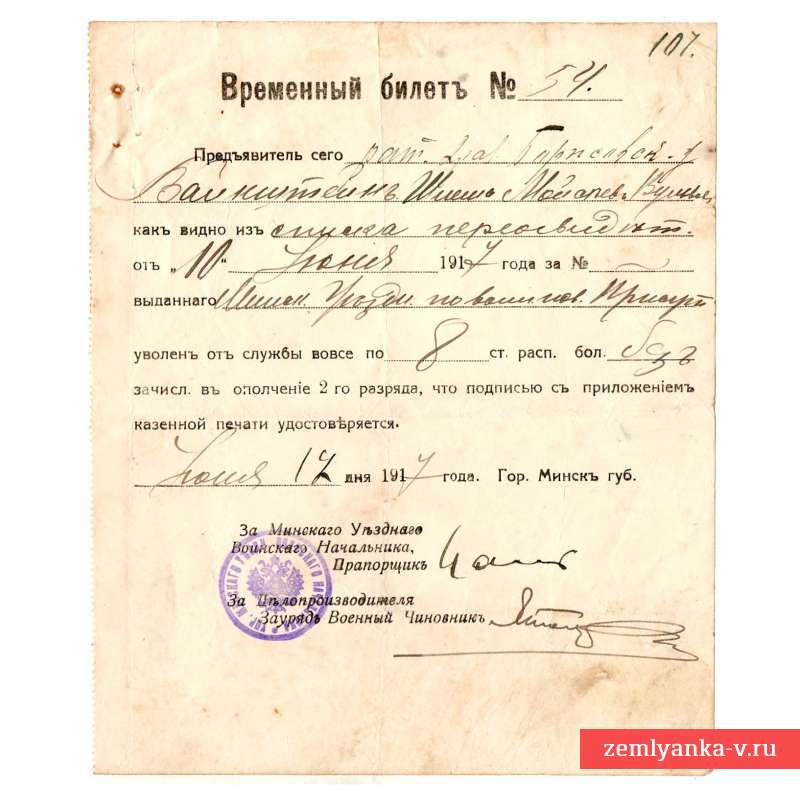 107.
Временный билетъ № 54.
Предъявитель сего рат.
Вайнштейнъ Шлема
какъ видно изъ списка переосвидѣт.
отъ „10" Июня 1917 года за № —
выданнаго Минск. Уѣздн. по воинс. пов. Присут.
уволен отъ службы вовсе по 8 ст. расп. бол. безъ
зачисл. въ ополченіе 2-го разряда, что подписью съ приложеніемъ
казенной печати удостовѣряется.
Июня 12 дня 1917 года. Гор. Минскъ губ.
За Минскаго Уѣзднаго
Воинскаго Начальника,
Прапорщикъ
За Дѣлопроизводителя
Заурядъ Военный Чиновникъ
zemlyanka-v.ru